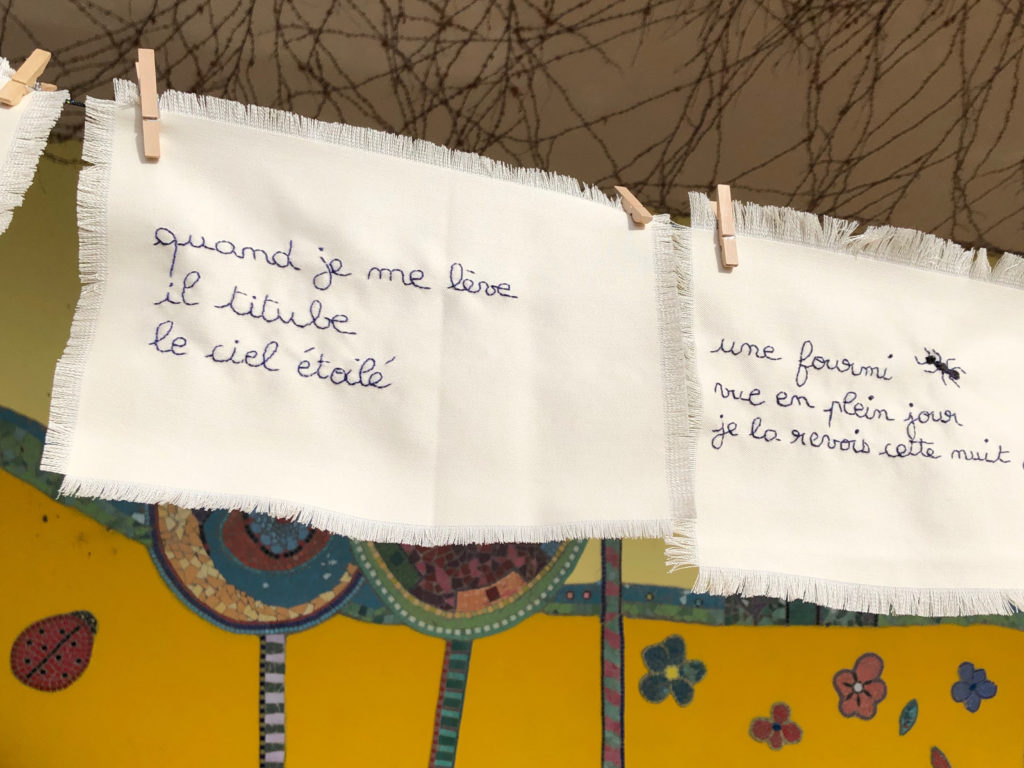 quand je me lève
il titube
le ciel étoilé
une fourmi
vue en plein jour
je la revois cette nuit